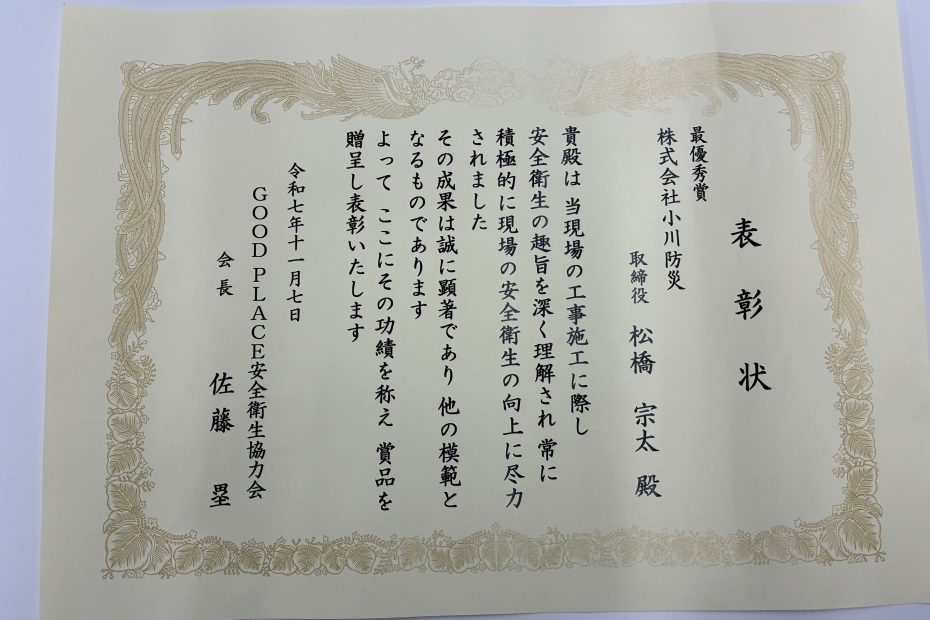 表彰状
最優秀賞
株式会社小川防災
取締役 松橋 宗太 殿
貴殿は 当現場の工事施工に際し
安全衛生の趣旨を深く理解され 常に
積極的に現場の安全衛生の向上に尽力
されました
その成果は誠に顕著であり 他の模範と
なるものであります
よって ここにその功績を称え 賞品を
贈呈し表彰いたします
令和七年十一月七日
GOOD PLACE安全衛生協力会
会長 佐藤 塁